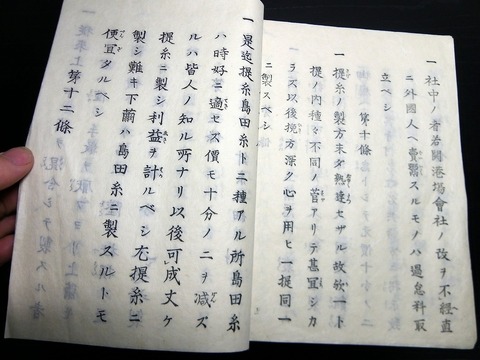 一 社中ノ者若開港場會社ノ改ヲ不經直
ニ外國人ヘ賣鬻スルモノハ過怠料取
立ベシ
第十條
一 提糸ノ製方未タ熟達セザル故欤一ト
提ノ内種々不同ノ菅アリテ甚冝シカ
ラズ以後挽方深ク心ヲ用ヒ一提同一
ニ製スベシ
一 是迄提糸島田糸ト二種アル所島田糸
ハ時好ニ適セズ價モ十分ノ二ヲ減ズ
ルハ皆人ノ知ル所ナリ以後可成丈ケ
提糸ニ製シ利益ヲ計ルベシ尤提糸ニ
製シ難キ下繭ハ島田糸ニ製スルトモ
便宜タルベシ
第十二條